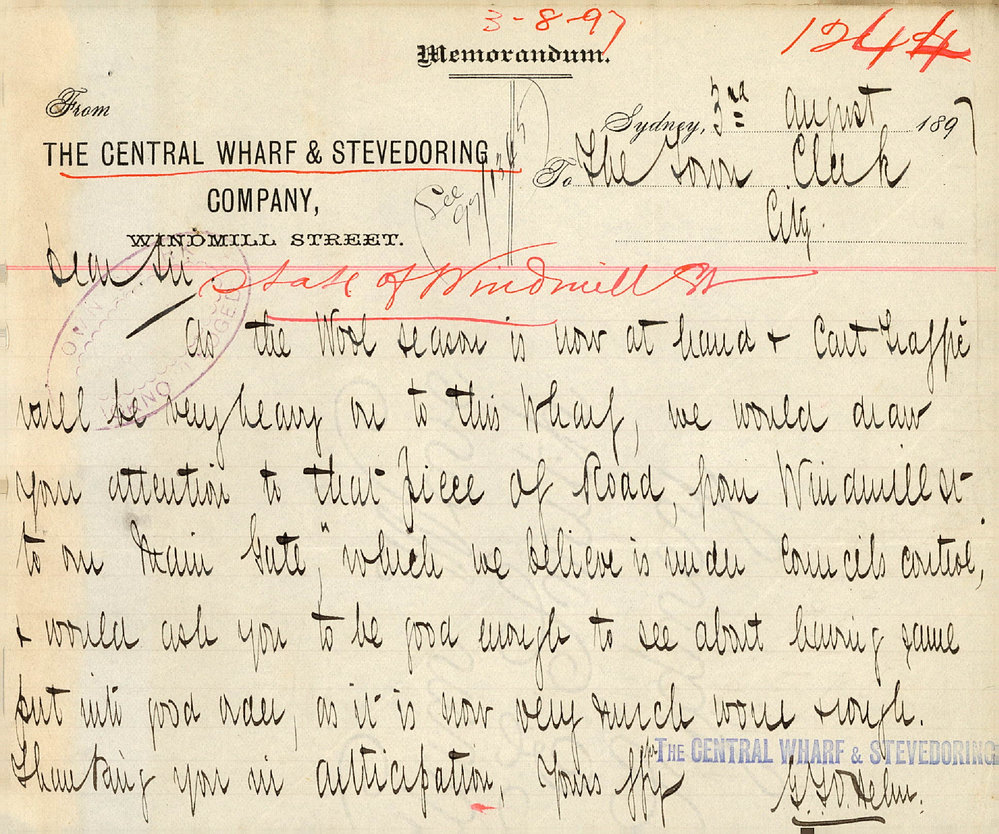 3-8-97
1244
Memorandum.
From
Sydney, 3rd August 1897
THE CENTRAL WHARF & STEVEDORING
To The Town Clerk
COMPANY,
City.
WINDMILL STREET.
See
Dear Sir,
State of Windmill St
As the Wool season is now at hand & Cart Traffic
will be very heavy on to this Wharf, we would draw
your attention to that piece of Road, from Windmill st
to our Main Gate," which we believe is under Councils control,
& would ask you to be good enough to see about having same
put into good order, as it is now very much worn & rough.
Thanking you in anticipation, Yours ffly
THE CENTRAL WHARF & STEVEDORING